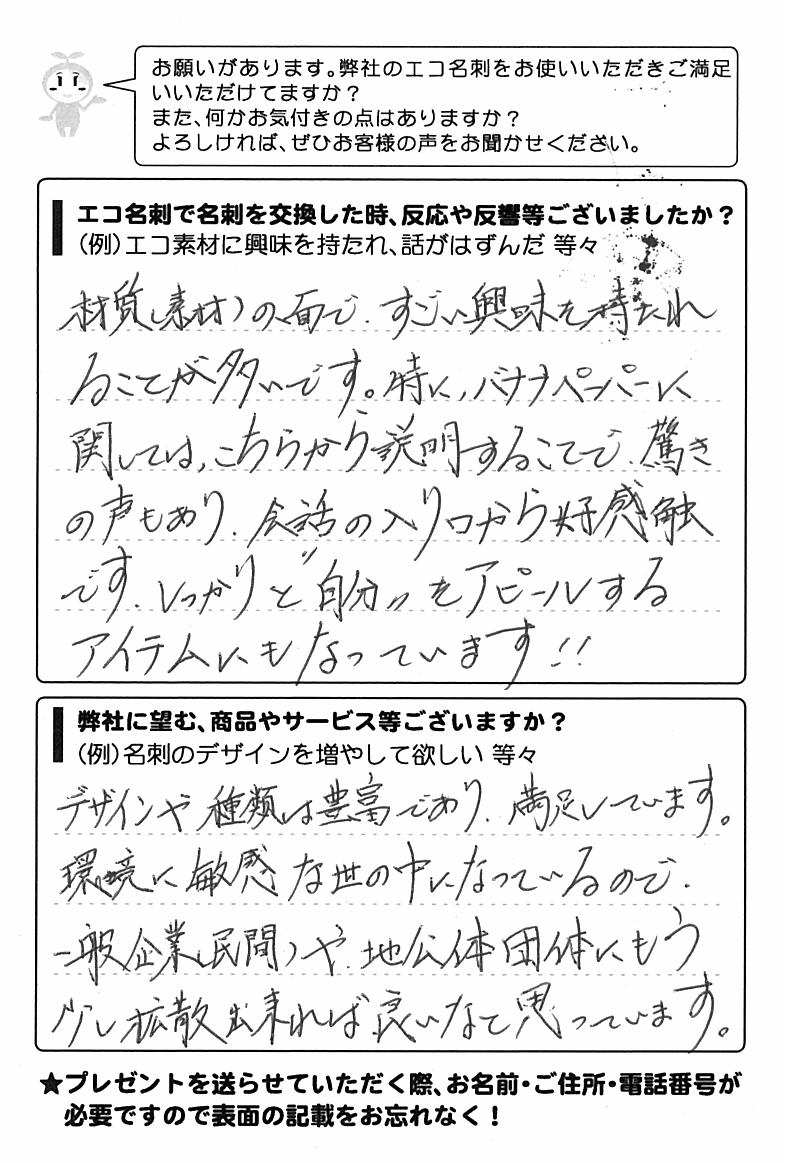 お願いがあります。弊社のエコ名刺をお使いいただきご満足
いいただけてますか？
また、何かお気付きの点はありますか？
よろしければ、ぜひお客様の声をお聞かせください。
エコ名刺で名刺を交換した時、反応や反響等ございましたか？
（例）エコ素材に興味を持たれ、話がはずんだ 等々
材質（素材）の面で、すごい興味を持たれ
ることが多いです。特に、バナナペーパーに
関しては、こちらから説明することで、驚き
の声もあり、会話の入り口から好感触
です。しっかりと“自分”をアピールする
アイテムにもなっています!!
弊社に望む、商品やサービス等ございますか？
（例）名刺のデザインを増やして欲しい 等々
デザインや種類は豊富であり、満足しています。
環境に敏感な世の中になっているので、
一般企業（民間）や、地公体団体にもう
少し拡散出来れば良いなと思っています。
★プレゼントを送らせていただく際、お名前・ご住所・電話番号が
必要ですので表面の記載をお忘れなく！